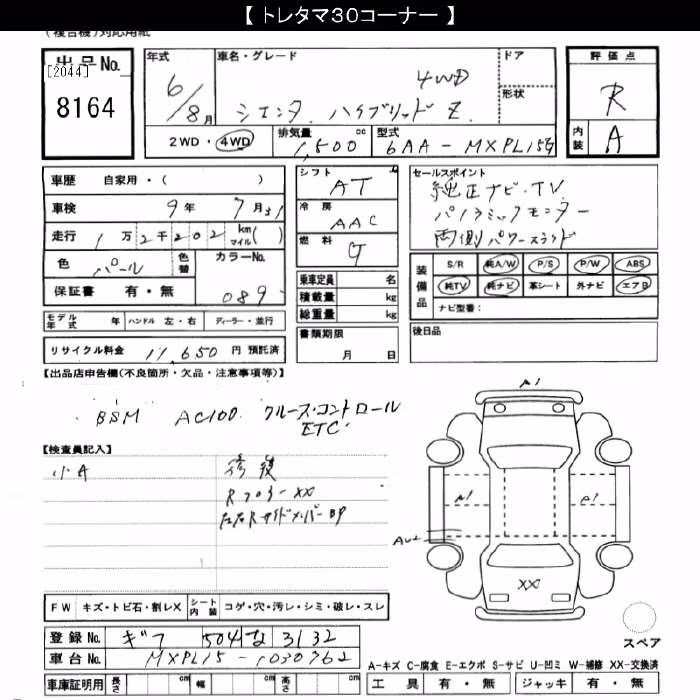 【 トレタマ30コーナー 】
(複合機)対応用紙
出品No.
[2044]
8164
年式
6/8月
車名・グレード
4WD
シエンタ ハイブリッド Z
ドア
形状
評価点
R
内装 A
2WD・4WD
排気量 1,500 cc
型式 6AA-MXPL15G
車歴 自家用・( )
車検 9年 7月31
走行 1万2千202 km マイル( )
色 パール
色替
カラーNo. 089
保証書 有・無
シフト AT
冷房 AAC
燃料 G
乗車定員 名
積載量 kg
総重量 kg
セールスポイント
純正ナビ・TV
パノラミックモニター
両側パワースライド
装備品
S/R 純A/W P/S P/W ABS
純TV 純ナビ 革シート 外ナビ エアB
ナビ型番:
モデル年式 年 ハンドル 左・右 ディーラー・並行
書類期限
月 日
後日品
リサイクル料金 11,650 円 預託済
【出品店申告欄(不良箇所・欠品・注意事項等)】
BSM AC100V クルーズ・コントロール
ETC
【検査員記入】
小A
修復
Rフロアー XX
左右Rサイドメンバー BP
A1
A1
A1
AU2
XX
FW キズ・トビ石・割レX シート内装 コゲ・穴・汚レ・シミ・破レ・スレ
スペア
登録No. ギフ 504 な 3132
車台No. MXPL15-1030362
A-キズ C-腐食 E-エクボ S-サビ U-凹ミ W-補修 XX-交換済
車庫証明用 長さ cm 幅 cm 高さ cm
工具 有・無 ジャッキ 有・無